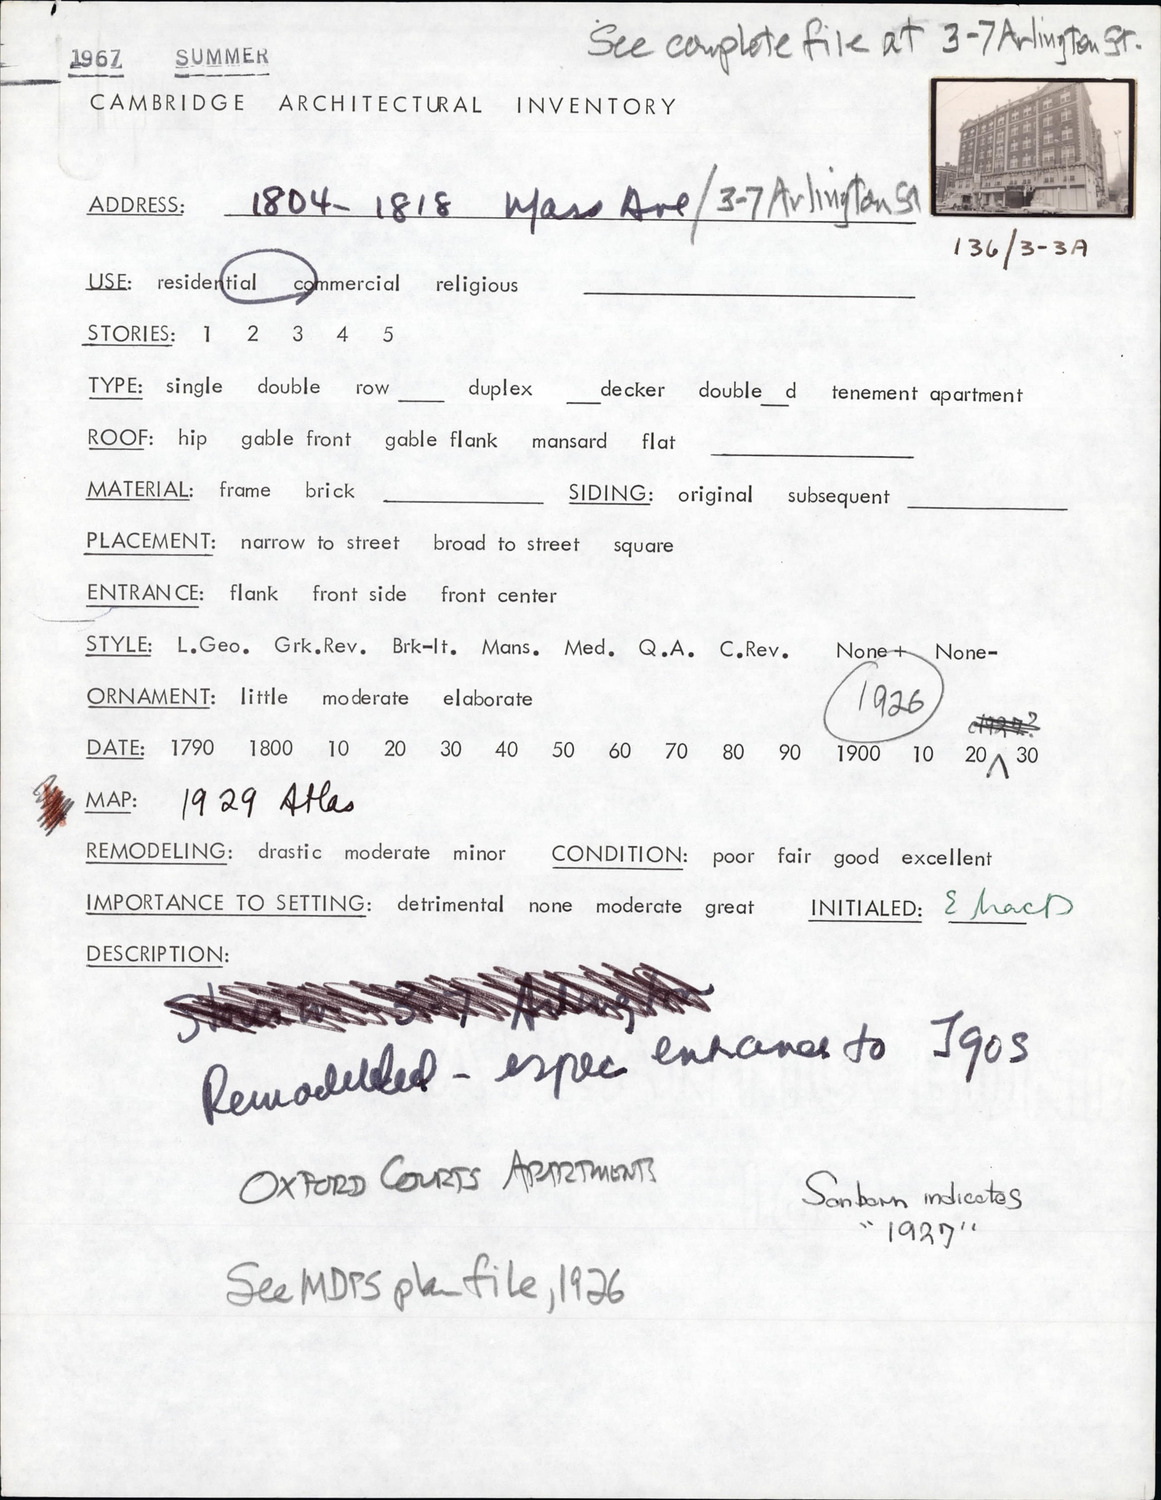 See complete file at 3-7 Arlington St.
1967 SUMMER
CAMBRIDGE ARCHITECTURAL INVENTORY
ADDRESS: 1804-1818 Mass Ave/3-7 Arlington St
136/3-3A
USE: residential commercial religious
STORIES: 1 2 3 4 5
TYPE: single double row ___ duplex ___decker double__d tenement apartment
ROOF: hip gable front gable flank mansard flat
MATERIAL: frame brick SIDING: original subsequent
PLACEMENT: narrow to street broad to street square
ENTRANCE: flank front side front center
STYLE: L.Geo. Grk.Rev. Brk-It. Mans. Med. Q.A. C.Rev. None+ None-
ORNAMENT: little moderate elaborate
1926
DATE: 1790 1800 10 20 30 40 50 60 70 80 90 1900 10 20 30
MAP: 1929 Atlas
REMODELING: drastic moderate minor CONDITION: poor fair good excellent
IMPORTANCE TO SETTING: detrimental none moderate great INITIALED: E MacD
DESCRIPTION:
3-7 Arlington
Remodelled - espec entrances to
OXFORD COURTS APARTMENTS
Sanborn indicates
"1927"
See MDPS plan file, 1926